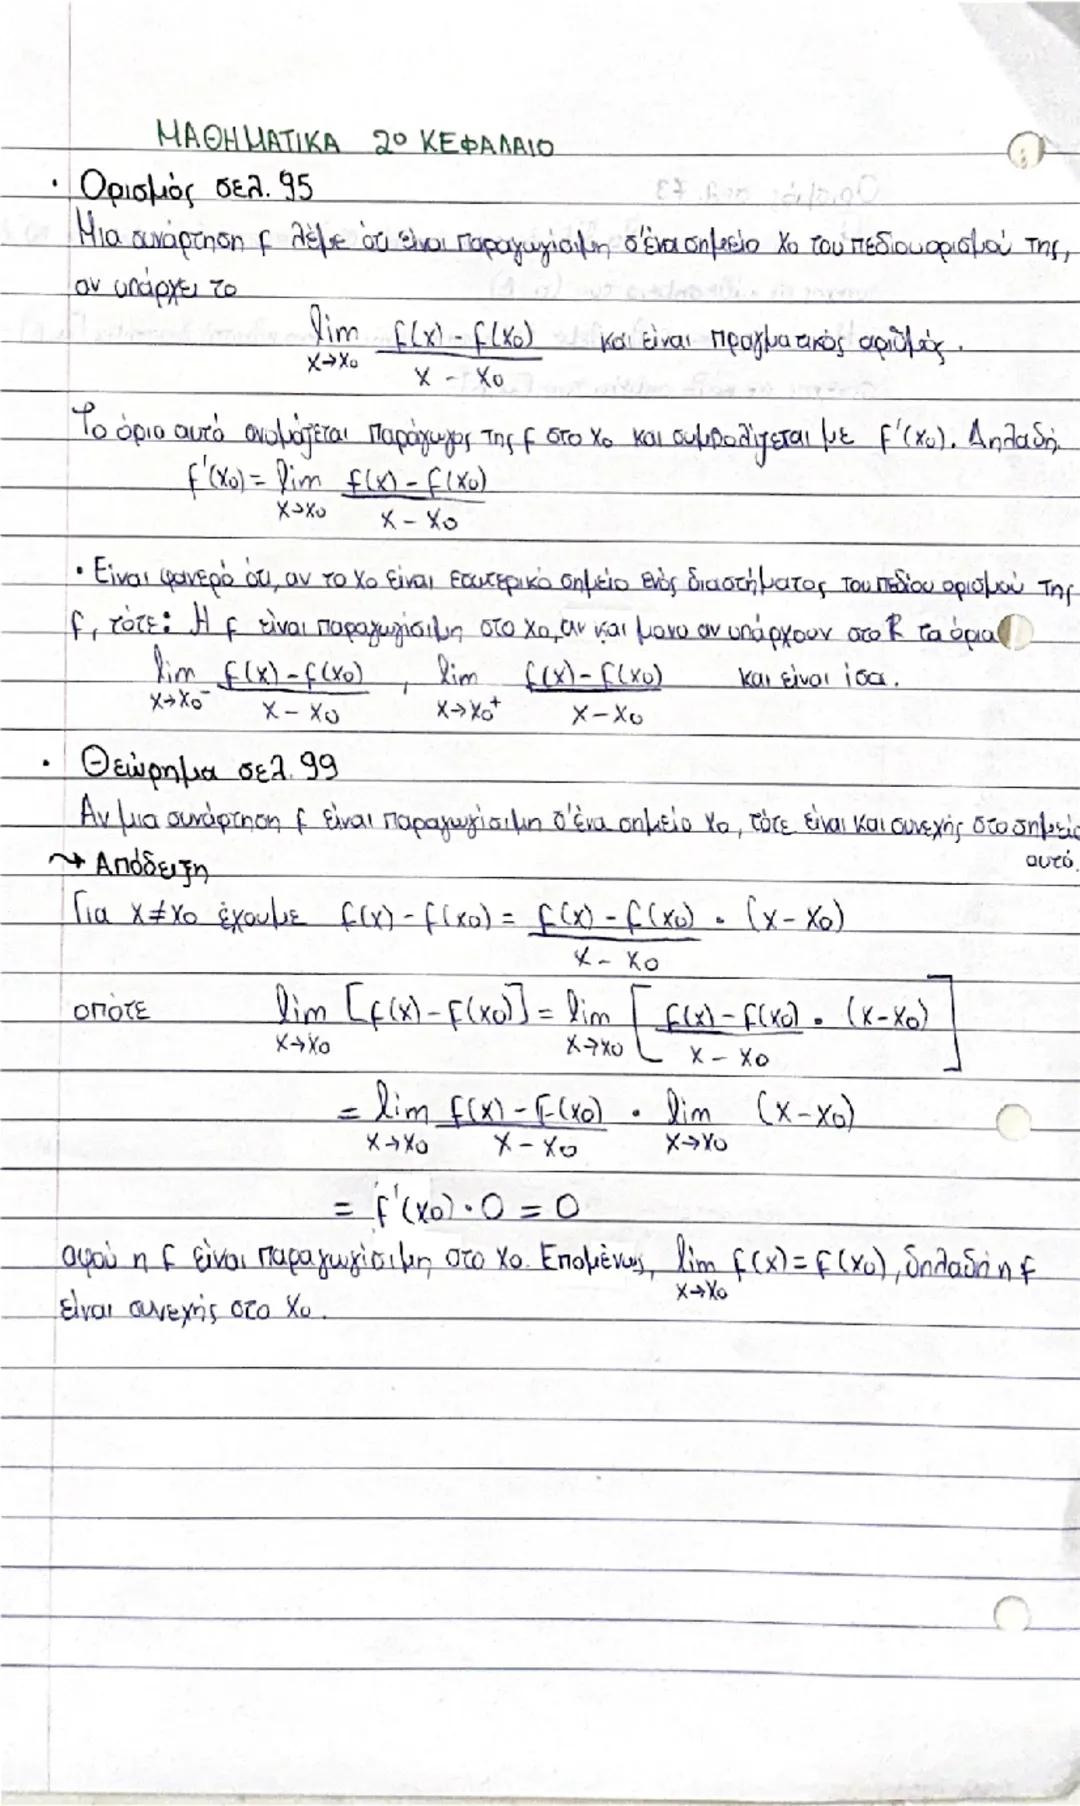 ΜΑΘΗΜΑΤΙΚΑ 2º ΚΕΦΑΛΑΙΟ
• Ορισμός σελ. 95
Μια συνάρτηση f λέμε ότι είναι παραγωγίσιμη σ'ένα σημείο x₀ του πεδίου ορισμού της,
αν υπάρχει το
lim f(x) - f(x₀) και είναι πραγματικός αριθμός.
x→x₀ x - x₀
Το όριο αυτό ονομάζεται παράγωγος της f στο x₀ και συμβολίζεται με f'(x₀). Δηλαδή
f'(x₀) = lim f(x) - f(x₀)
x→x₀ x - x₀
• Είναι φανερό ότι, αν το x₀ είναι εσωτερικό σημείο ενός διαστήματος του πεδίου ορισμού της
f, τότε: Η f είναι παραγωγίσιμη στο x₀, αν και μονο αν υπάρχουν στο R τα όρια
lim f(x) - f(x₀) , lim f(x) - f(x₀) και είναι ίσα.
x→x₀⁻ x - x₀ x→x₀⁺ x - x₀
• Θεώρημα σελ. 99
Αν μια συνάρτηση f είναι παραγωγίσιμη σ'ένα σημείο x₀, τότε είναι και συνεχής στο σημείο
αυτό.
↝ Απόδειξη
Για x ≠ x₀ έχουμε f(x) - f(x₀) = f(x) - f(x₀) · (x - x₀)
x - x₀
οπότε lim [f(x) - f(x₀)] = lim [ f(x) - f(x₀) · (x - x₀) ]
x→x₀ x→x₀ x - x₀
= lim f(x) - f(x₀) · lim (x - x₀)
x→x₀ x - x₀ x→x₀
= f'(x₀) · 0 = 0
αφού η f είναι παραγωγίσιμη στο x₀. Επομένως, lim f(x) = f(x₀), δηλαδή η f
x→x₀
είναι συνεχής στο x₀.